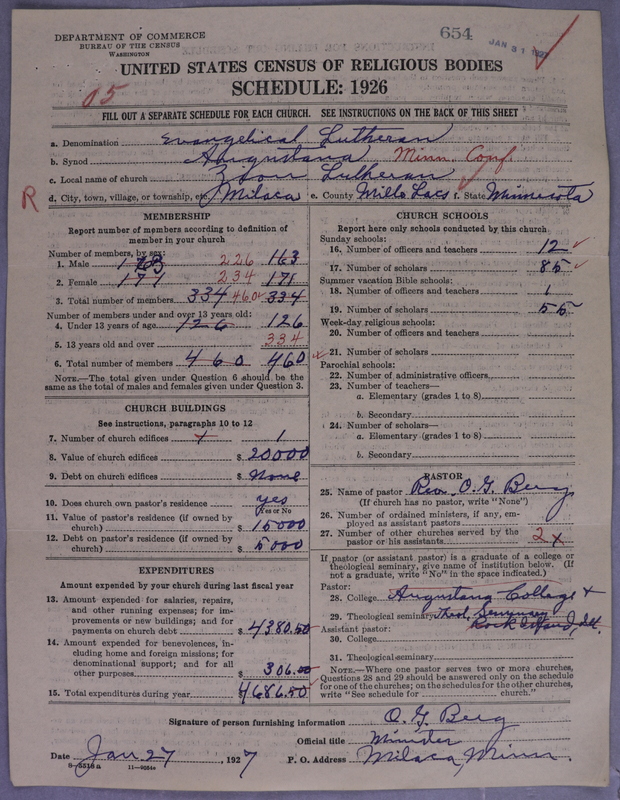 DEPARTMENT OF COMMERCE
BUREAU OF THE CENSUS
WASHINGTON
654
JAN 31 1927
UNITED STATES CENSUS OF RELIGIOUS BODIES
SCHEDULE: 1926
05
FILL OUT A SEPARATE SCHEDULE FOR EACH CHURCH. SEE INSTRUCTIONS ON THE BACK OF THIS SHEET
a. Denomination Evangelical Lutheran
b. Synod Augustana Minn Conf
c. Local name of church Zion Lutheran
R d. City, town, village, or township, etc. Milaca e. County Mille Lacs f. State Minnesota
MEMBERSHIP
Report number of members according to definition of
member in your church
Number of members, by sex:
1. Male 226 163
2. Female 171 234 171
3. Total number of members 334 460 334
Number of members under and over 13 years old:
4. Under 13 years of age 126 126
5. 13 years old and over 334
6. Total number of members 460 460
NOTE.—The total given under Question 6 should be the
same as the total of males and females given under Question 3.
CHURCH BUILDINGS
See instructions, paragraphs 10 to 12
7. Number of church edifices 1
8. Value of church edifices $ 20000
9. Debt on church edifices $ None
10. Does church own pastor's residence yes
(Yes or No
11. Value of pastor's residence (if owned by
church) $ 15000
12. Debt on pastor's residence (if owned by
church) $ 5000
EXPENDITURES
Amount expended by your church during last fiscal year
13. Amount expended for salaries, repairs,
and other running expenses; for im-
provements or new buildings; and for
payments on church debt $ 4380.50
14. Amount expended for benevolences, in-
cluding home and foreign missions; for
denominational support; and for all
other purposes $ 306.00
15. Total expenditures during year 4686.50
CHURCH SCHOOLS
Report here only schools conducted by this church
Sunday schools:
16. Number of officers and teachers 12
17. Number of scholars 85
Summer vacation Bible schools:
18. Number of officers and teachers 1
19. Number of scholars 55
Week-day religious schools:
20. Number of officers and teachers
21. Number of scholars
Parochial schools:
22. Number of administrative officers
23. Number of teachers—
a. Elementary (grades 1 to 8)
b. Secondary
24. Number of scholars—
a. Elementary (grades 1 to 8)
b. Secondary
PASTOR
25. Name of pastor Rev. O. G. Berg
(If church has no pastor, write "None")
26. Number of ordained ministers, if any, em-
ployed as assistant pastors
27. Number of other churches served by the
pastor or his assistants 2 x
If pastor (or assistant pastor) is a graduate of a college or
theological seminary, give name of institution below. (If
not a graduate, write "No" in the space indicated.)
Pastor:
28. College Augustana College +
29. Theological seminary Theol. Seminary
Rock Island, Ill.
Assistant pastor:
30. College
31. Theological seminary
NOTE.—Where one pastor serves two or more churches,
Questions 28 and 29 should be answered only on the schedule
for one of the churches; on the schedules for the other churches,
write "See schedule for church."
Signature of person furnishing information O. G. Berg
Official title Minister
Date Jan 27, 1927 P. O. Address Milaca, Minn.
8—5518a 11—9054